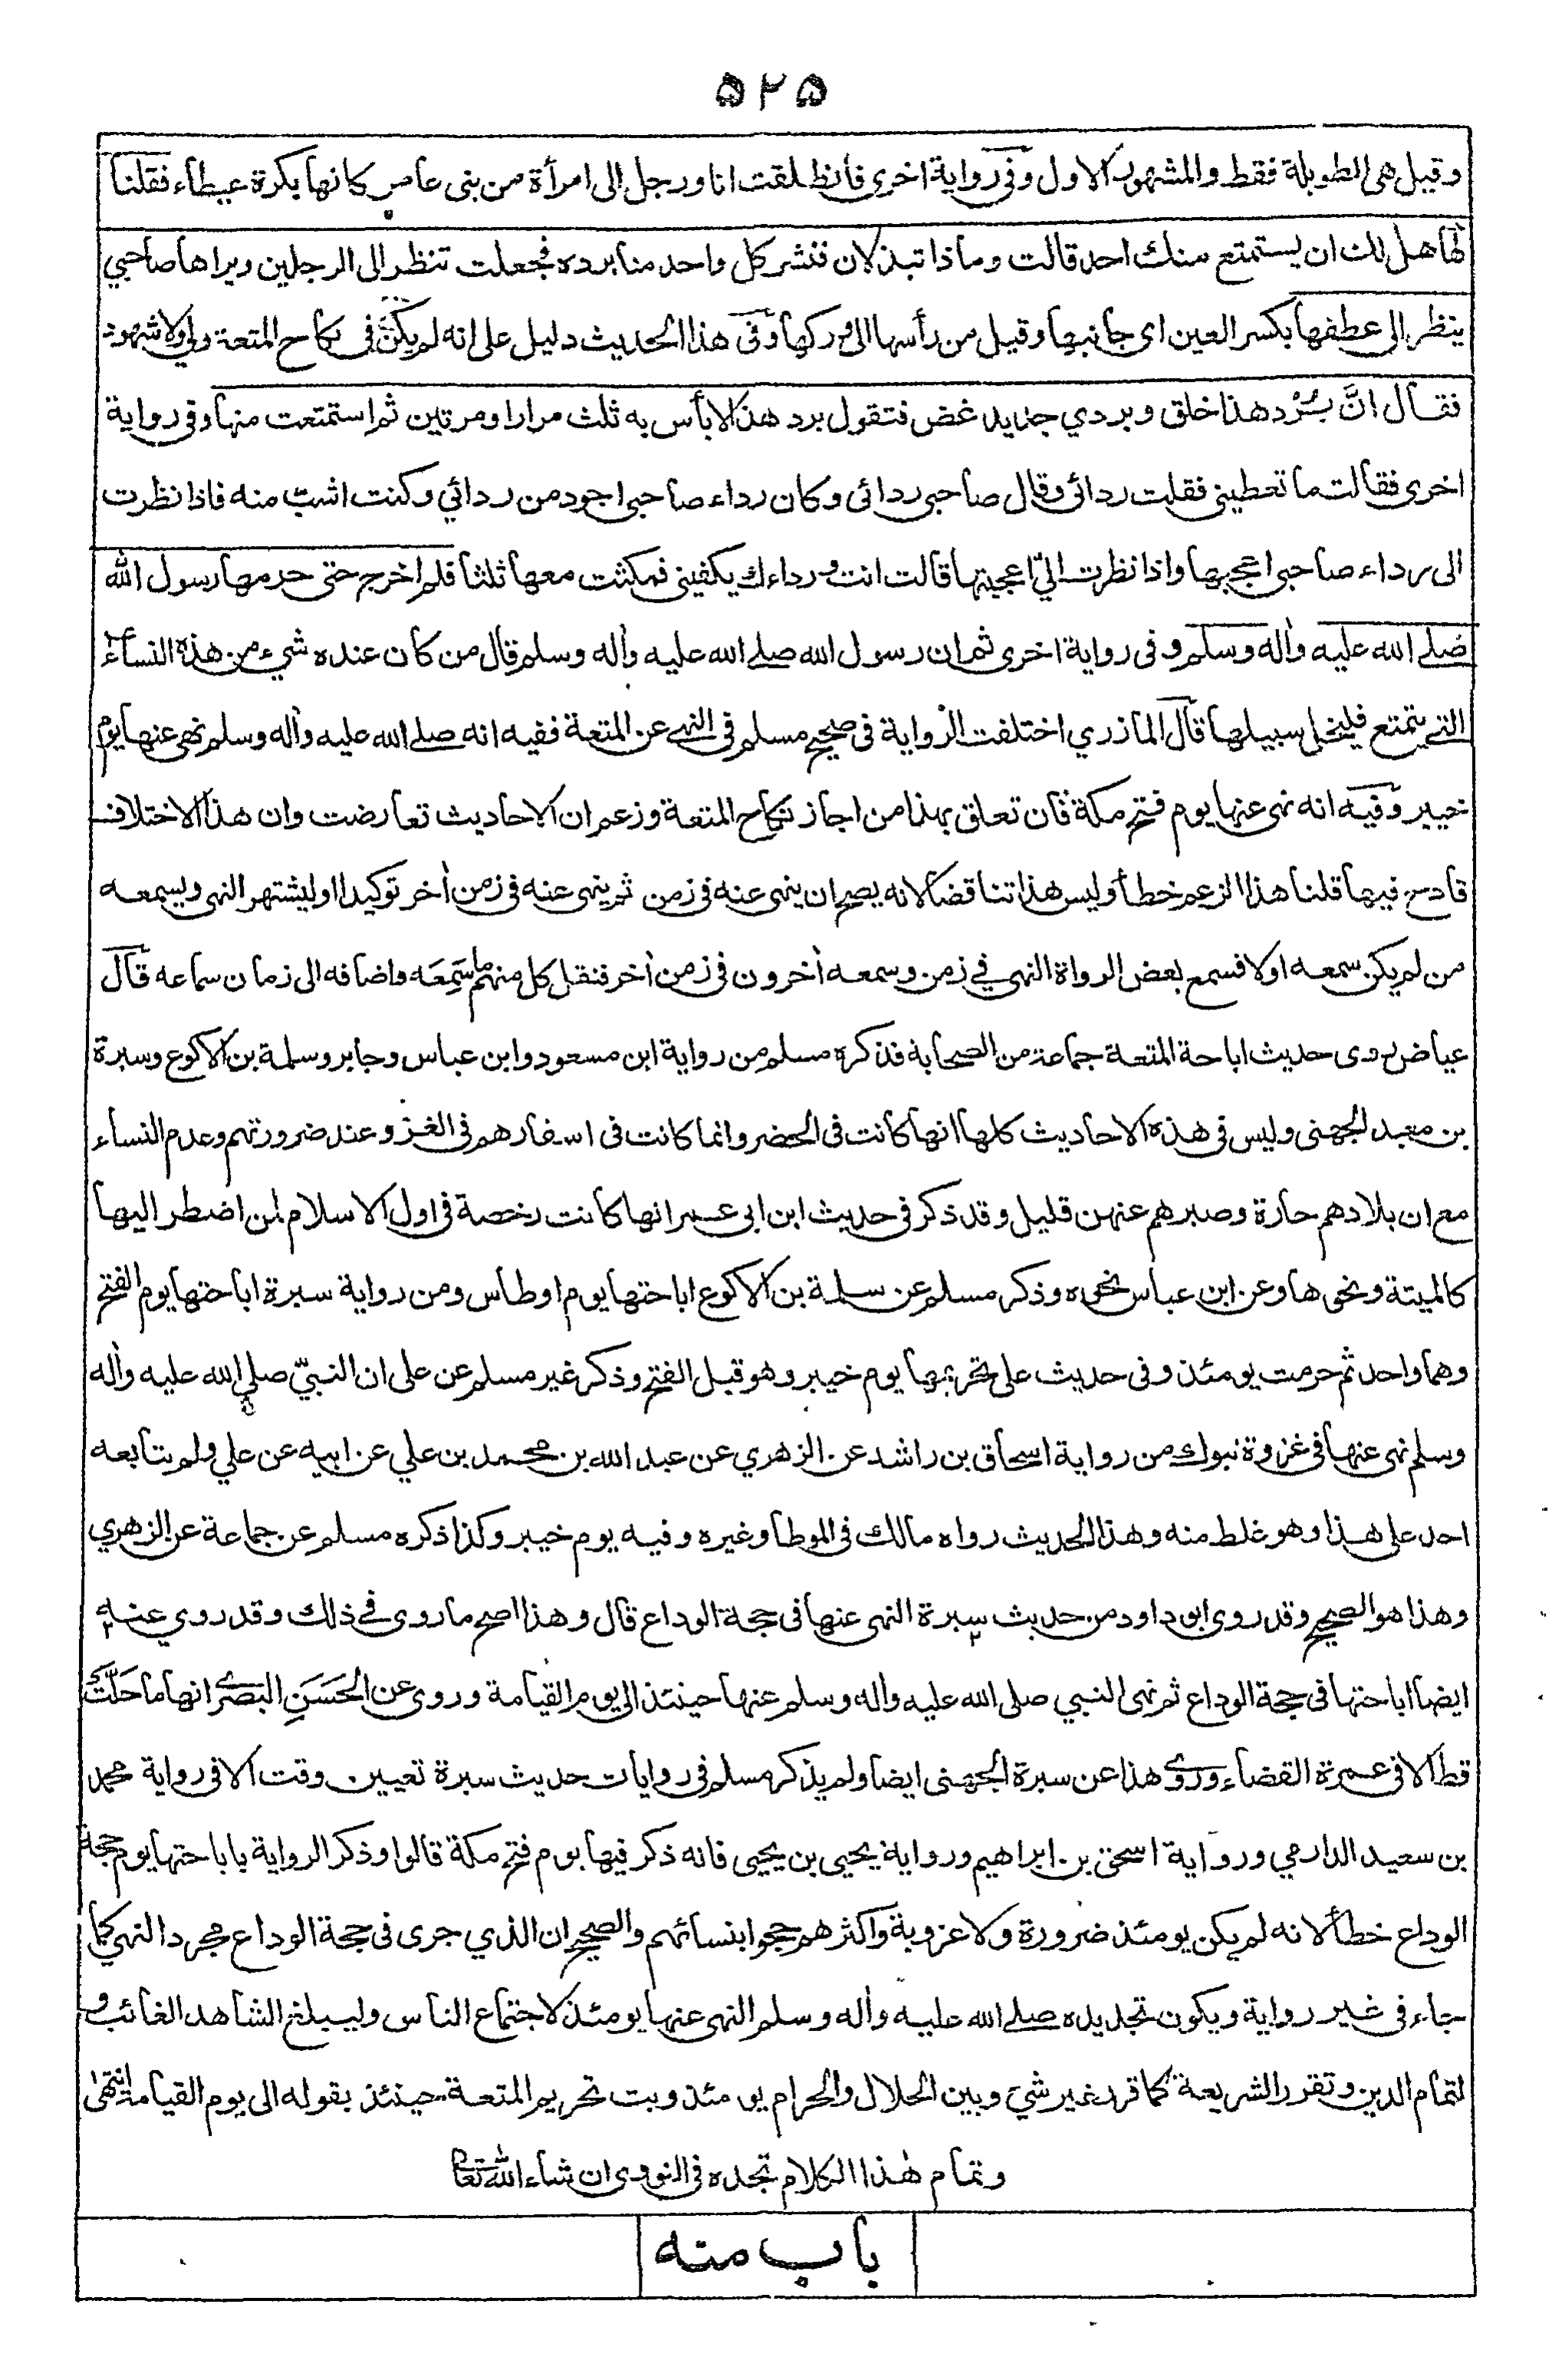 ۵۲۵
وقيل هى الطويلة فقط والمشهور الاول وفى رواية اخرى فانطلقت انا ورجل الى امرأة من بنى عامر كانها بكرة عيطاء فقلنا
لها هل لك ان يستمتع منك احد قالت وماذا تبذلان فنشر كل واحد منا برده فجعلت تنظر الى الرجلين ويراها صاحبي
ينظر الى عطفها بكسر العين اى جانبها وقيل من رأسها الى وركها وفى هذا الحديث دليل على انه لم يكن فى نكاح المتعة ولي ولا شهود
فقال انَّ بُرْد هذا خلق وبردي جديد غض فتقول برد هذا لا بأس به ثلث مرار او مرتين ثم استمتعت منها وفى رواية
اخرى فقالت ما تعطينى فقلت ردائى وقال صاحبى ردائى وكان رداء صاحبى اجود من ردائي وكنت اشب منه فاذا نظرت
الى رداء صاحبى اعجبها واذا نظرت اليّ اعجبتها قالت انت ورداءك يكفينى فمكثت معها ثلثا فلم اخرج حتى حرمها رسول الله
صلے الله عليه واٰله وسلم وفى رواية اخرى ثم ان رسول الله صلے الله عليه واٰله وسلم قال من كان عنده شيء من هذه النساء
التے يتمتع فليخل سبيلها قال المازري اختلفت الرواية فى صحيح مسلم فى النهے عن المتعة ففيه انه صلے الله عليه واٰله وسلم نهى عنها يوم
خيبر وفيه انه نهى عنها يوم فتح مكة فان تعلق بهذا من اجاز نكاح المتعة وزعم ان الاحاديث تعارضت وان هذا الاختلاف
قادح فيها قلنا هذا الزعم خطأ وليس هذا تناقضا لانه يصح ان ينهى عنه فى زمن ثم ينهى عنه فى زمن اٰخر توكيدا او ليشتهر النهى ويسمعه
من لم يكن سمعه اولا فسمع بعض الرواة النهى في زمن وسمعه اٰخرون فى زمن اٰخر فنقل كل منهم ما سَمِعَه واضافه الى زمان سماعه قال
عياض روى حديث اباحة المتعة جماعة من الصحابة فذكره مسلم من رواية ابن مسعود وابن عباس وجابر وسلمة بن الاكوع وسبرة
بن معبد الجهنى وليس فى هذه الاحاديث كلها انها كانت فى الحضر وانما كانت فى اسفارهم فى الغزو عند ضرورتهم وعدم النساء
مع ان بلادهم حارة وصبرهم عنهن قليل وقد ذكر فى حديث ابن ابى عمر انها كانت رخصة فى اول الاسلام لمن اضطر اليها
كالميتة ونحوها وعن ابن عباس نحوه وذكر مسلم عن سلمة بن الاكوع اباحتها يوم اوطاس ومن رواية سبرة اباحتها يوم الفتح
وهما واحد ثم حرمت يومئذ وفى حديث على تحريمها يوم خيبر وهو قبل الفتح وذكر غير مسلم عن على ان النبيّ صلى الله عليه واٰله
وسلم نهى عنها فى غزوة تبوك من رواية اسحاق بن راشد عن الزهري عن عبد الله بن محمد بن علي عن ابيه عن علي ولم يتابعه
احد على هذا وهو غلط منه وهذا الحديث رواه مالك فى الموطا وغيره وفيه يوم خيبر وكذا ذكره مسلم عن جماعة عن الزهري
وهذا هو الصحيح وقد روى ابو داود من حديث سبرة النهى عنها فى حجة الوداع قال وهذا اصح ما روى في ذلك وقد روي عنه
ايضا اباحتها فى حجة الوداع ثم نهى النبي صلى الله عليه واٰله وسلم عنها حينئذ الى يوم القيامة وروى عن الحَسَنِ البَصَرے انها ما حَلَّتْ
قط الا فى عمرة القضاء وروے هذا عن سبرة الجهنى ايضا ولم يذكر مسلم فى روايات حديث سبرة تعيين وقت الا فى رواية محمد
بن سعيد الدارمي ورواية اسحق بن ابراهيم ورواية يحيى بن يحيى فانه ذكر فيها يوم فتح مكة قالوا وذكر الرواية باباحتها يوم حجة
الوداع خطأ لانه لم يكن يومئذ ضرورة ولا عزوبة واكثرهم حجوا بنسائهم والصحيح ان الذي جرى فى حجة الوداع مجرد النهى كما
جاء فى غير رواية ويكون تجديده صلے الله عليه واٰله وسلم النهى عنها يومئذ لاجتماع الناس وليبلغ الشاهد الغائب و
لتمام الدين وتقرر الشريعة كما قرر غير شئ وبين الحلال والحرام يومئذ وبت تحريم المتعة حينئذ بقوله الى يوم القيامة انتهى
وتمام هٰذا الكلام تجده فى النووى ان شاء الله تعا
باب منه